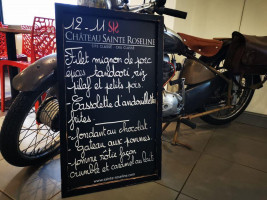 12-11 SR
CHÂTEAU SAINTE ROSELINE
CRU CLASSÉ
Filet mignon de porc
épices tandoori riz
pilaf et petits pois
- Cassolette d'andouillette
frites -
- fondant au chocolat -
- Gateau aux pommes -
- pomme rôtie façon
crumble et caramel au lait